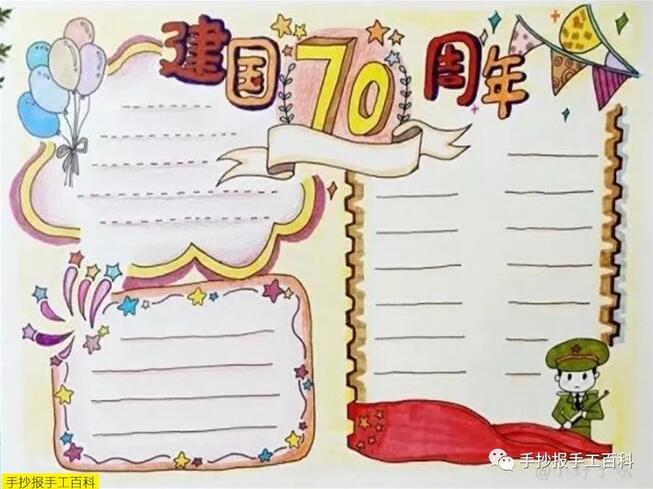 建国70周年
手抄报手工百科
手抄报手工百科